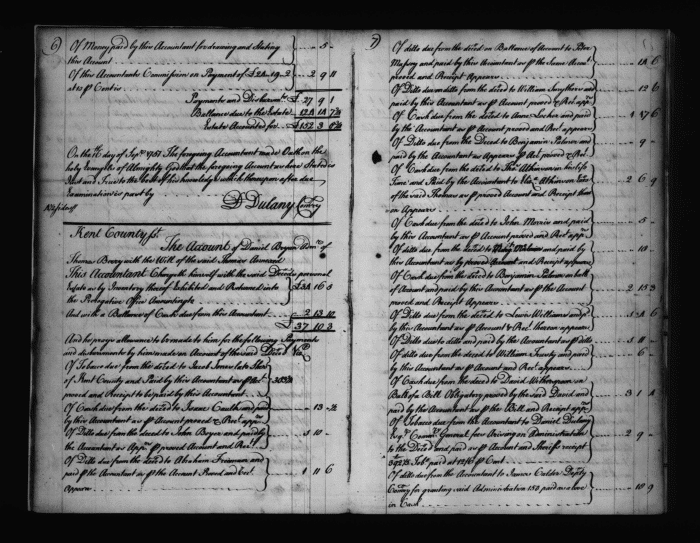 6)
Of Money paid by this Accountant for drawing and Stating - 5 -
this Account
Of this Accountants Commission on Payment of £24..19..2 - 2 9 11
at 10 p Cent is
Payments and Disbursmts £ 27 9 1
Ballance due to the Estate
Estate Accounted for £ 152 3
On the day of Sepr. 1751 The foregoing Accountant made Oath on the
holy Evangels of Almighty God that the foregoing Account as here Stated is
Just and True to the best of his knowledge which thereupon after due
Examination is past by
D Dulany Comry
Kent County ss
The Account of David Bryan Admr. of
Thomas Berry with the Will of the said Thomas Annexed
This Accountant Chargeth himself with the said Deceds personal
Estate as by Inventory thereof Exhibited and Returned into
the Prerogative Office Amounting to £34 16 5
And with a Ballance of Cash due from this Accountant 2 13 10
£ 37 10 3
And he prays allowance to be made to him for the following Payments
and disbursments by him made on Account of the said Deced Viz.
Of Tobacco due from the deced to Jacob Jones late Sheriff
of Kent County and Paid by this Accountant as p Acct.
proved and Receipt to be paid by this Accountant
Of Cash due from the deced to Isaac Caulk and paid - 13
by this Accountant as p Account proved & Rect. appears
Of Ditto due from the deced to John Boyer and paid by 3 10 -
the Accountant as Appears p proved Account and Rect.
Of Ditto due from the deced to Abraham Freeman and
paid p the Accountant as p the Account Proved and Rect. 1 11 6
Appears
7)
Of ditto due from the deced on Ballance of Account to Peter
Massey and paid by this Accountant as p the same Account - 14 6
proved and Receipt Appears
Of Ditto due on ditto from the deced to William Smythers and - 12 6
paid by this Accountant as p Account proved & Rect. appears
Of Cash due from the deced to Anne Locker and paid
by this Accountant as p Account proved and Rect. appears
Of Ditto due from the Deced to Benjamin Palmer and - 9 -
paid by the Accountant as Appears p Act. proved & Rect.
Of Cash due from the deced to Thos. Atkinson in his life
Time and Paid by the Accountant to the Atkinson 2 6 9
of the said Thomas as p proved Account and Receipt thereon
Appears
Of Cash due from the deced to John Morris and paid - 5 -
by this Accountant as p Account proved and Receipt appears
Of ditto due from the deced to and paid by - 10 -
this Accountant as by proved Account and Receipt appears
Of Cash due from the deced to Benjamin Palmer on ball
of Account and paid by this Accountant as p the Account 2 15 3
proved and Receipt Appears
Of Ditto due from the deced to Lewis Williams and p
by this Accountant as p Account & Rect. thereon appears
Of Ditto due to ditto and paid by the Accountant as p ditto
Of ditto due from the deced to William Trusty and paid - 6 -
by this Accountant as p Account and Rect. appears
Of Cash due from the deced to David Witherspoon on
Ball. of a Bill Obligatory proved by the said David and 3 1 4
paid by this Accountant as p the Bill and Receipt appears
Of Tobacco due from the deced to Daniel Dulany
Esqr. Commry. General for Striving on Administration 2 9 -
to the Deced and paid as p Account and Sheriffs receipt
Tobo. paid at 12/6 p Cent
Of ditto due from the Accountant to James Calder Deputy
Comry for granting said Administration 150 paid as above - 18 9
in Cash